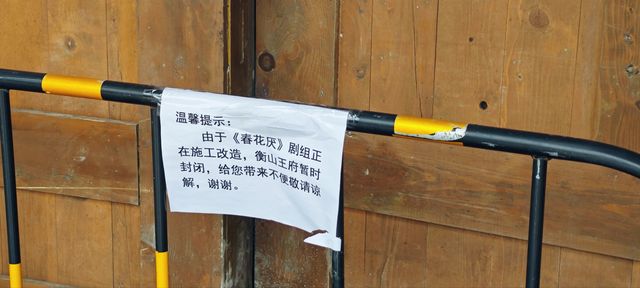 温馨提示：
由于《春花厌》剧组正
在施工改造，衡山王府暂时
封闭，给您带来不便敬请谅
解，谢谢。